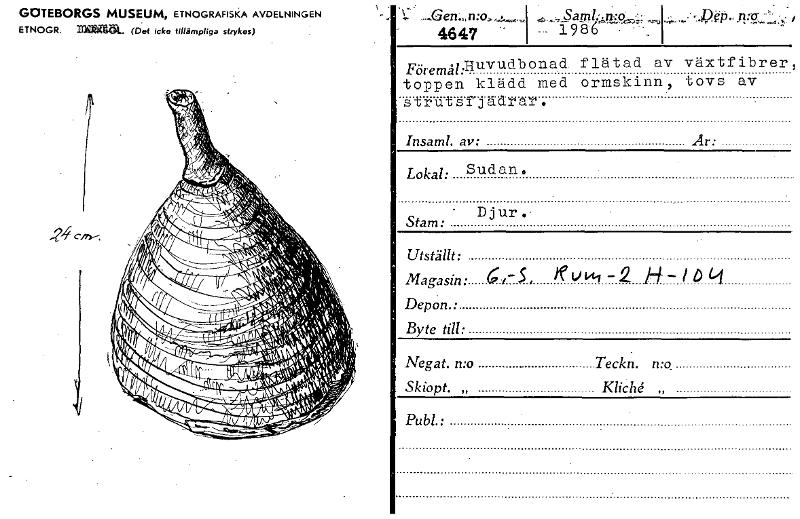 GÖTEBORGS MUSEUM, ETNOGRAFISKA AVDELNINGEN
ETNOGR. (Det icke tillämpliga strykes)
24 cm.
Gen. n:o Saml. n:o Dep. n:o
4647 1986
Föremål: Huvudbonad flätad av växtfibrer,
toppen klädd med ormskinn, tovs av
strutsfjädrar.
Insaml. av: År:
Lokal: Sudan.
Stam: Djur.
Utställt:
Magasin: G.-S. Rum-2 H-104
Depon.:
Byte till:
Negat. n:o Teckn. n:o
Skiopt. „ Kliché „
Publ.: